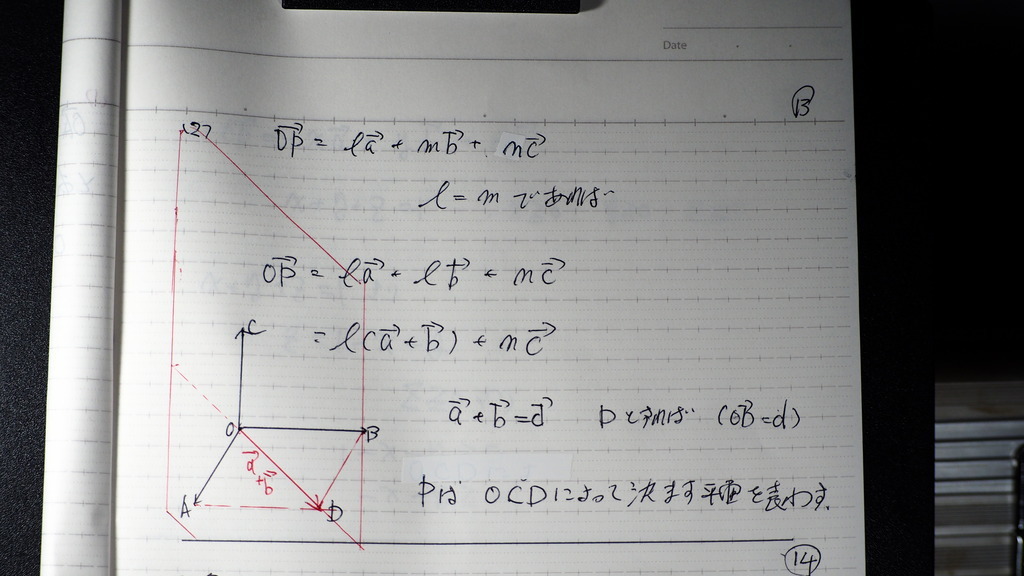 Date
13
(2) OP→ = ℓa→ + mb→ + nc→
ℓ = m であれば
OP→ = ℓa→ + ℓb→ + nc→
= ℓ(a→+b→) + nc→
C
a→ + b→ = d→ Dとすれば (OB=d)
O
B
a→+b→
Pは OCDによって決ます平面を表わす.
A
D
14